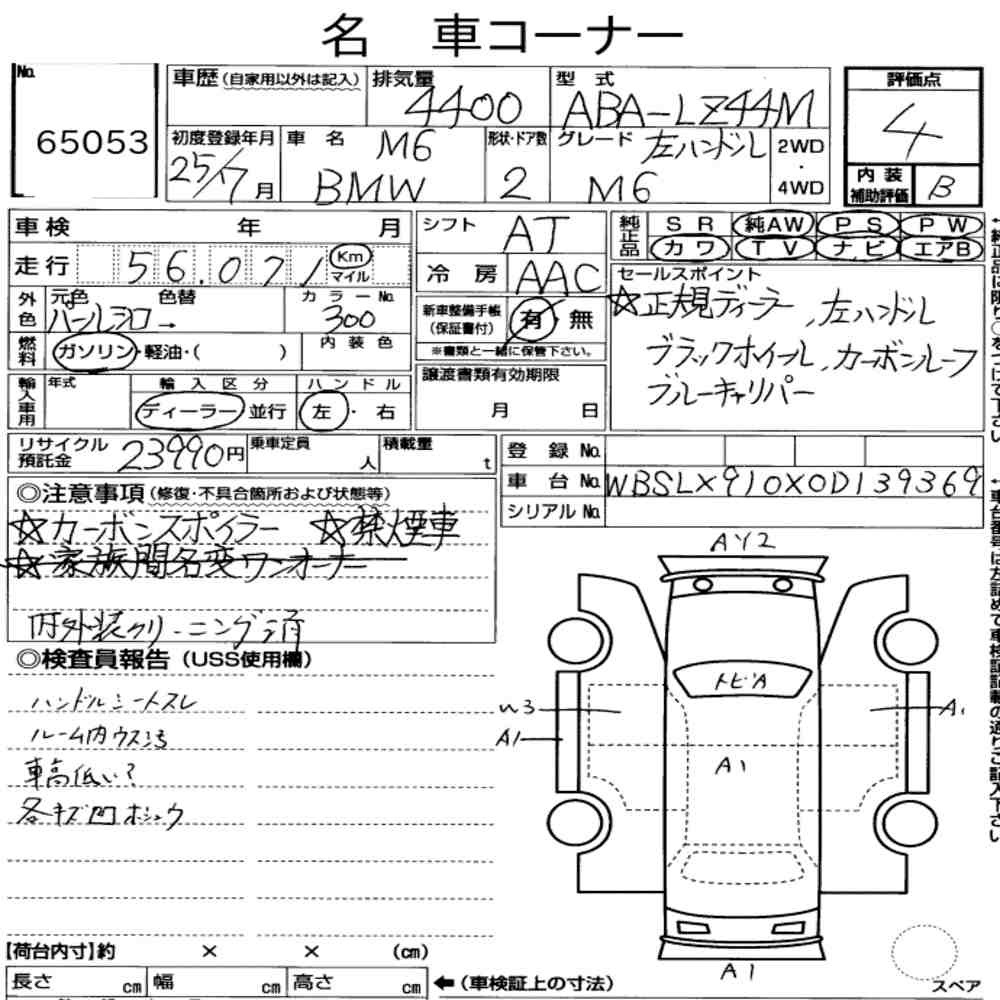 名 車コーナー
No.
65053
車歴(自家用以外は記入) 排気量 4400 型式 ABA-LZ44M
評価点 4
初度登録年月 25/7月 車名 M6 BMW 形状・ドア数 2 グレード 左ハンドル M6 2WD・4WD
内装補助評価 B
車検 年 月
シフト AT
純正品 SR 純AW PS PW
カワ TV ナビ エアB
走行 56.071 Km マイル
冷房 AAC
セールスポイント
☆正規ディーラー、左ハンドル
ブラックホイール、カーボンルーフ
ブルーキャリパー
外色 元色 パールシロ→ 色替 カラーNo. 300
内装色
新車整備手帳(保証書付) 有・無
※書類と一緒に保管下さい。
燃料 ガソリン・軽油・( )
輸入車用 年式 輸入区分 ディーラー 並行 ハンドル 左・右
譲渡書類有効期限
月 日
リサイクル預託金 23990円 乗車定員 人 積載量 t
登録No.
車台No. WBSLX910X0D139369
シリアルNo.
◎注意事項(修復・不具合箇所および状態等)
☆カーボンスポイラー ☆禁煙車
☆家族間名変ワンオーナー
内外装クリーニング済
◎検査員報告(USS使用欄)
ハンドルシートスレ
ルーム内ウス汚
車高低い?
各キズ凹ホシュウ
AY2
トビA
W3
A1
A1
A1
A1
スペア
【荷台内寸】約 × × (cm)
長さ cm 幅 cm 高さ cm ←(車検証上の寸法)